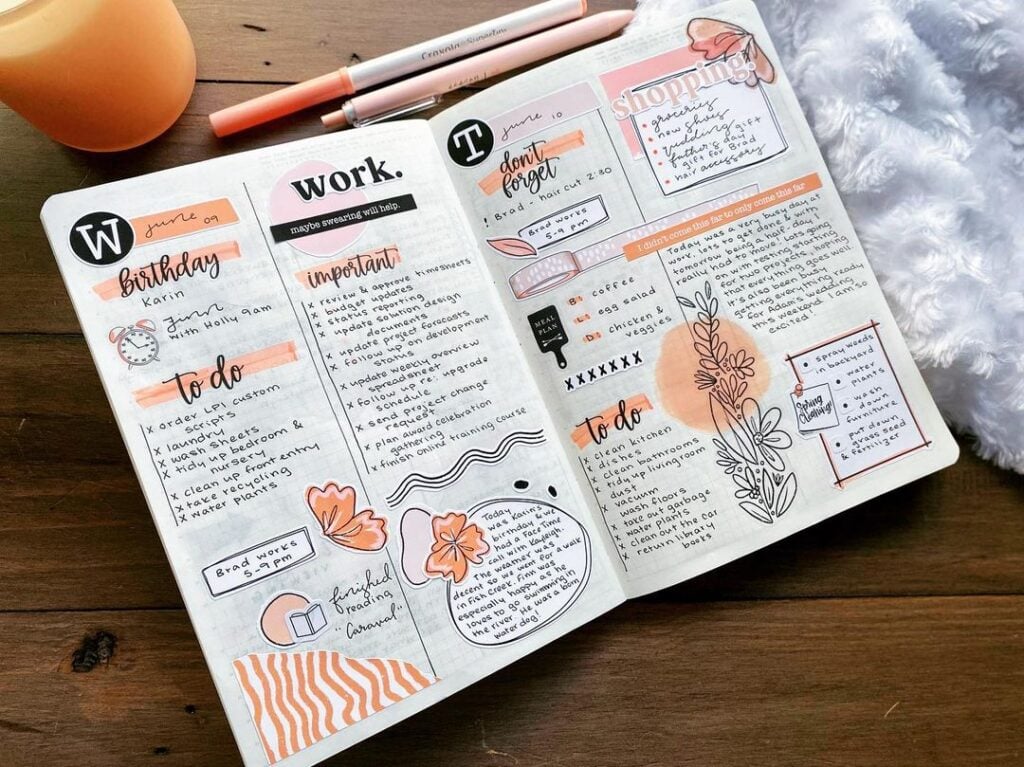 Crayola Supertips
W
June 09
birthday
Karin
with Holly 9am
to do
x order LPI custom
scripts
x laundry
x wash sheets
x tidy up bedroom &
nursery
x clean up front entry
x take recycling
x water plants
Brad works
5-9 pm
finished
reading
"Caraval"
work.
maybe swearing will help.
important
x review & approve timesheets
x budget updates
x status reporting
x update solution design
documents
x update project forecasts
x follow up on development
status
x update weekly overview
spreadsheet
x follow up re: upgrade
schedule
x send project change
request
x plan award celebration
gathering
x finish online training course
Today
was Karin's
birthday & we
had a Face Time
call with Kayleigh.
The weather was
decent so we went for a walk
in Fish Creek. Finn was
especially happy as he
loves to go swimming in
the river. He was a born
water dog!
T
June 10
don't
forget
! Brad - hair cut 2:30
Brad works
5-9 pm
MEAL
PLAN
B: coffee
L: egg salad
D: chicken &
veggies
x x x x x x x
to do
x clean kitchen
x dishes
x clean bathrooms
x tidy up living room
x dust
x vacuum
x wash floors
x take out garbage
x water plants
x clean out the car
x return library
books
shopping!
groceries
new shoes
wedding gift
father's day
gift for Brad
hair accessory
I didn't come this far to only come this far
Today was a very busy day at
work. Lots to get done & with
tomorrow being a half-day I
really had to move! Lots going
on with testing starting
for two projects, hoping
that everything goes well.
It's also been busy
getting everything ready
for Adam's wedding
this weekend. I am so
excited!
Spring
Cleaning!
spray weeds
in backyard
water
plants
wash
down
furniture
put down
grass seed
& fertilizer